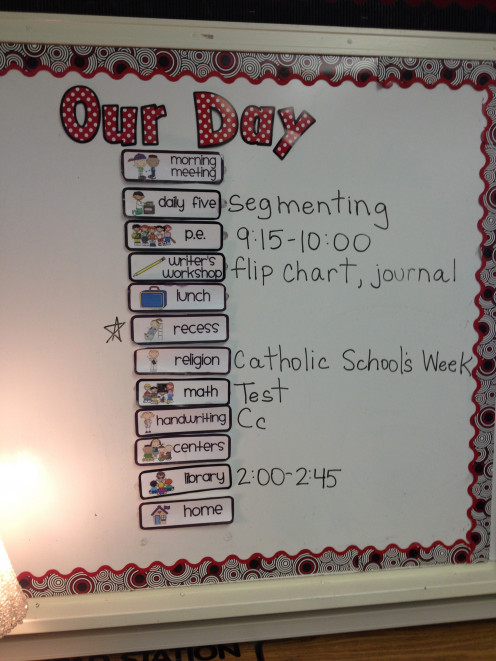 Our Day
morning
meeting
daily five segmenting
p.e. 9:15-10:00
writer's
workshop flip chart, journal
lunch
recess
religion Catholic School's Week
math Test
handwriting Cc
centers
library 2:00-2:45
home
STATION